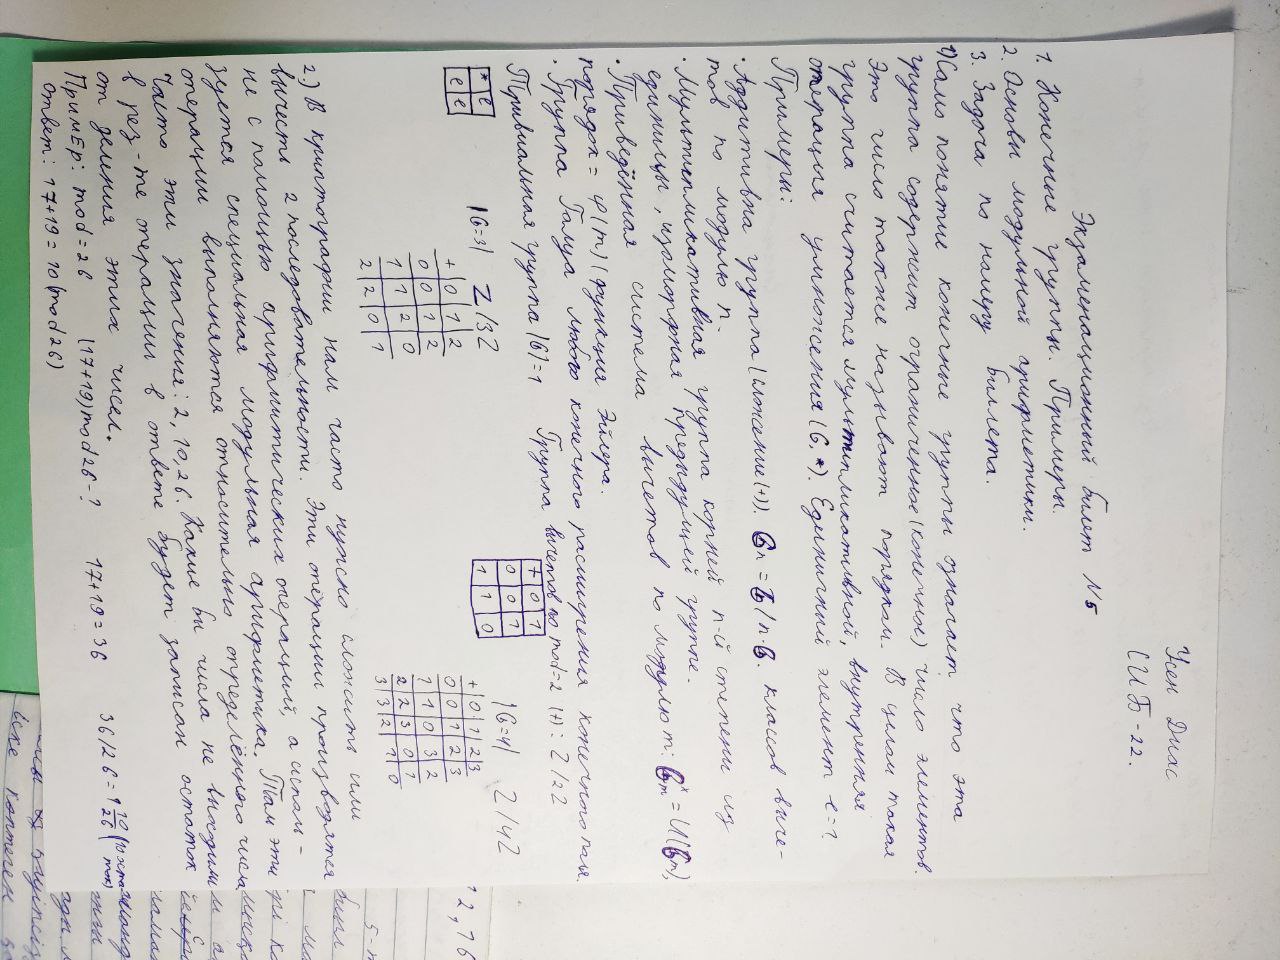 Усен Диас
СИБ-22.
Экзаменационный билет №5
1. Конечные группы. Примеры.
2. Основы модульной арифметики.
3. Задача по номеру биллета.
1) Само понятие конечные группы означает что эта
группа содержит ограниченное (конечное) число элементов.
Это число также называют порядком. В целом такая
группа считается мультипликативной, внутренняя
операция умножения (G, *). Единичный элемент e=1
Примеры:
• Аддитивна группа (сложение (+)). Gn = G/n·G. классов выче-
тов по модулю n.
• Мультипликативная группа корней n-й степени из
единицы, изоморфная предыдущей группе.
• Приведённая система вычетов по модулю m: Gm^x = U(Gm),
порядок = φ(m) (функция Эйлера.
• Группа Галуа любого конечного расширения конечного поля.
Тривиальная группа |G|=1 Группа вычетов по mod=2 (+): Z/2Z
* e
e e
+ 0 1
0 0 1
1 1 0
|G=3| Z/3Z
+ 0 1 2
0 0 1 2
1 1 2 0
2 2 0 1
|G=4| Z/4Z
+ 0 1 2 3
0 0 1 2 3
1 1 0 3 2
2 2 3 0 1
3 3 2 1 0
2.) В криптографии нам часто нужно сложить или
вычесть 2 последовательности. Эти операции производятся
не с помощью арифмитических операций, а исполь-
зуется специальная модульная арифметика. Там эти
операции выполняются относительно определённого числа
Часто эти значения: 2, 10, 26. Какие бы числа не выходим
в рез-те операции в ответе будет записан остаток
от деления этих чисел.
Пример: mod=26 (17+19)mod26-? 17+19=36 36/26=1 10/26 (10 остаток)
Ответ: 17+19=10(mod26)
12, 16